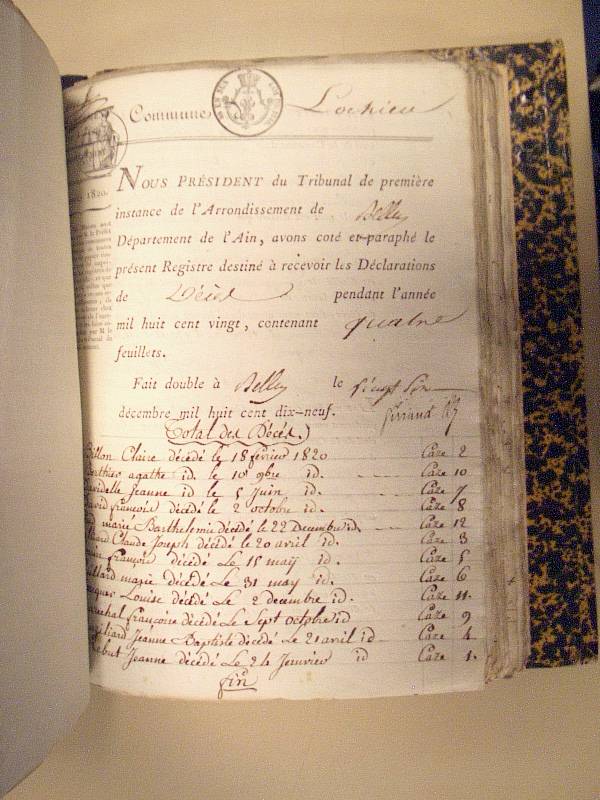 Commune Lochieu
1820.
NOUS PRÉSIDENT du Tribunal de première
instance de l'Arrondissement de Belley
Département de l'Ain, avons coté et paraphé le
présent Registre destiné à recevoir les Déclarations
de Décès pendant l'année
mil huit cent vingt, contenant quatre
feuillets.
Fait double à Belley le vingt
décembre mil huit cent dix-neuf.
Total des Décés.)
Claire décédé le 18 février 1820 Caze 2
agathe id. le 10 9bre id. Caze 10
Jeanne id le 5 Juin id. Caze 7
françois décédé le 2 octobre id. Caze 8
marié Barthelemie décédé le 22 Decembre id. Caze 12
Claude Joseph décédé le 20 avril id. Caze 3
françois décédé Le 15 maÿ id. Caze 5
marie Décédé Le 31 maÿ id. Caze 6
Louise décédé Le 2 decembre id. Caze 11.
françoise décédé Le Sept octobre id Caze 9
Jeanne Baptiste décédé Le 21 avril id Caze 4
Jeanne décédé Le 24 Janvier id Caze 1.
fin